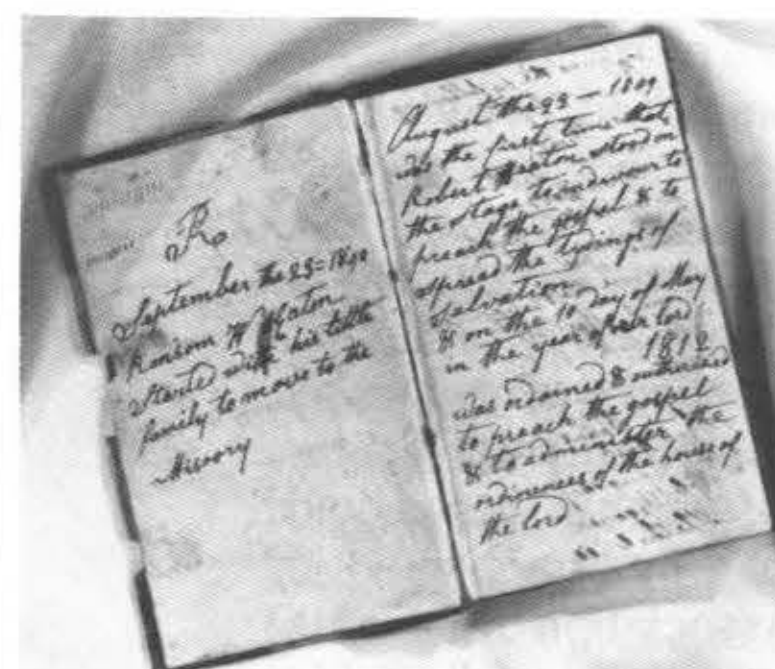 R
September the 23=18
Ransom H Heaton
Started with his little
family to move to the
August the 23 — 1809
was the first time that
Robert Heaton stood on
the stage to endeavour to
preach the gospel & to
spread the tydings of
Salvation
& on the 10 day of May
in the year of our lord
1812
was ordained &
to preach the gospel
& to administer the
ordinances of the house of
the lord